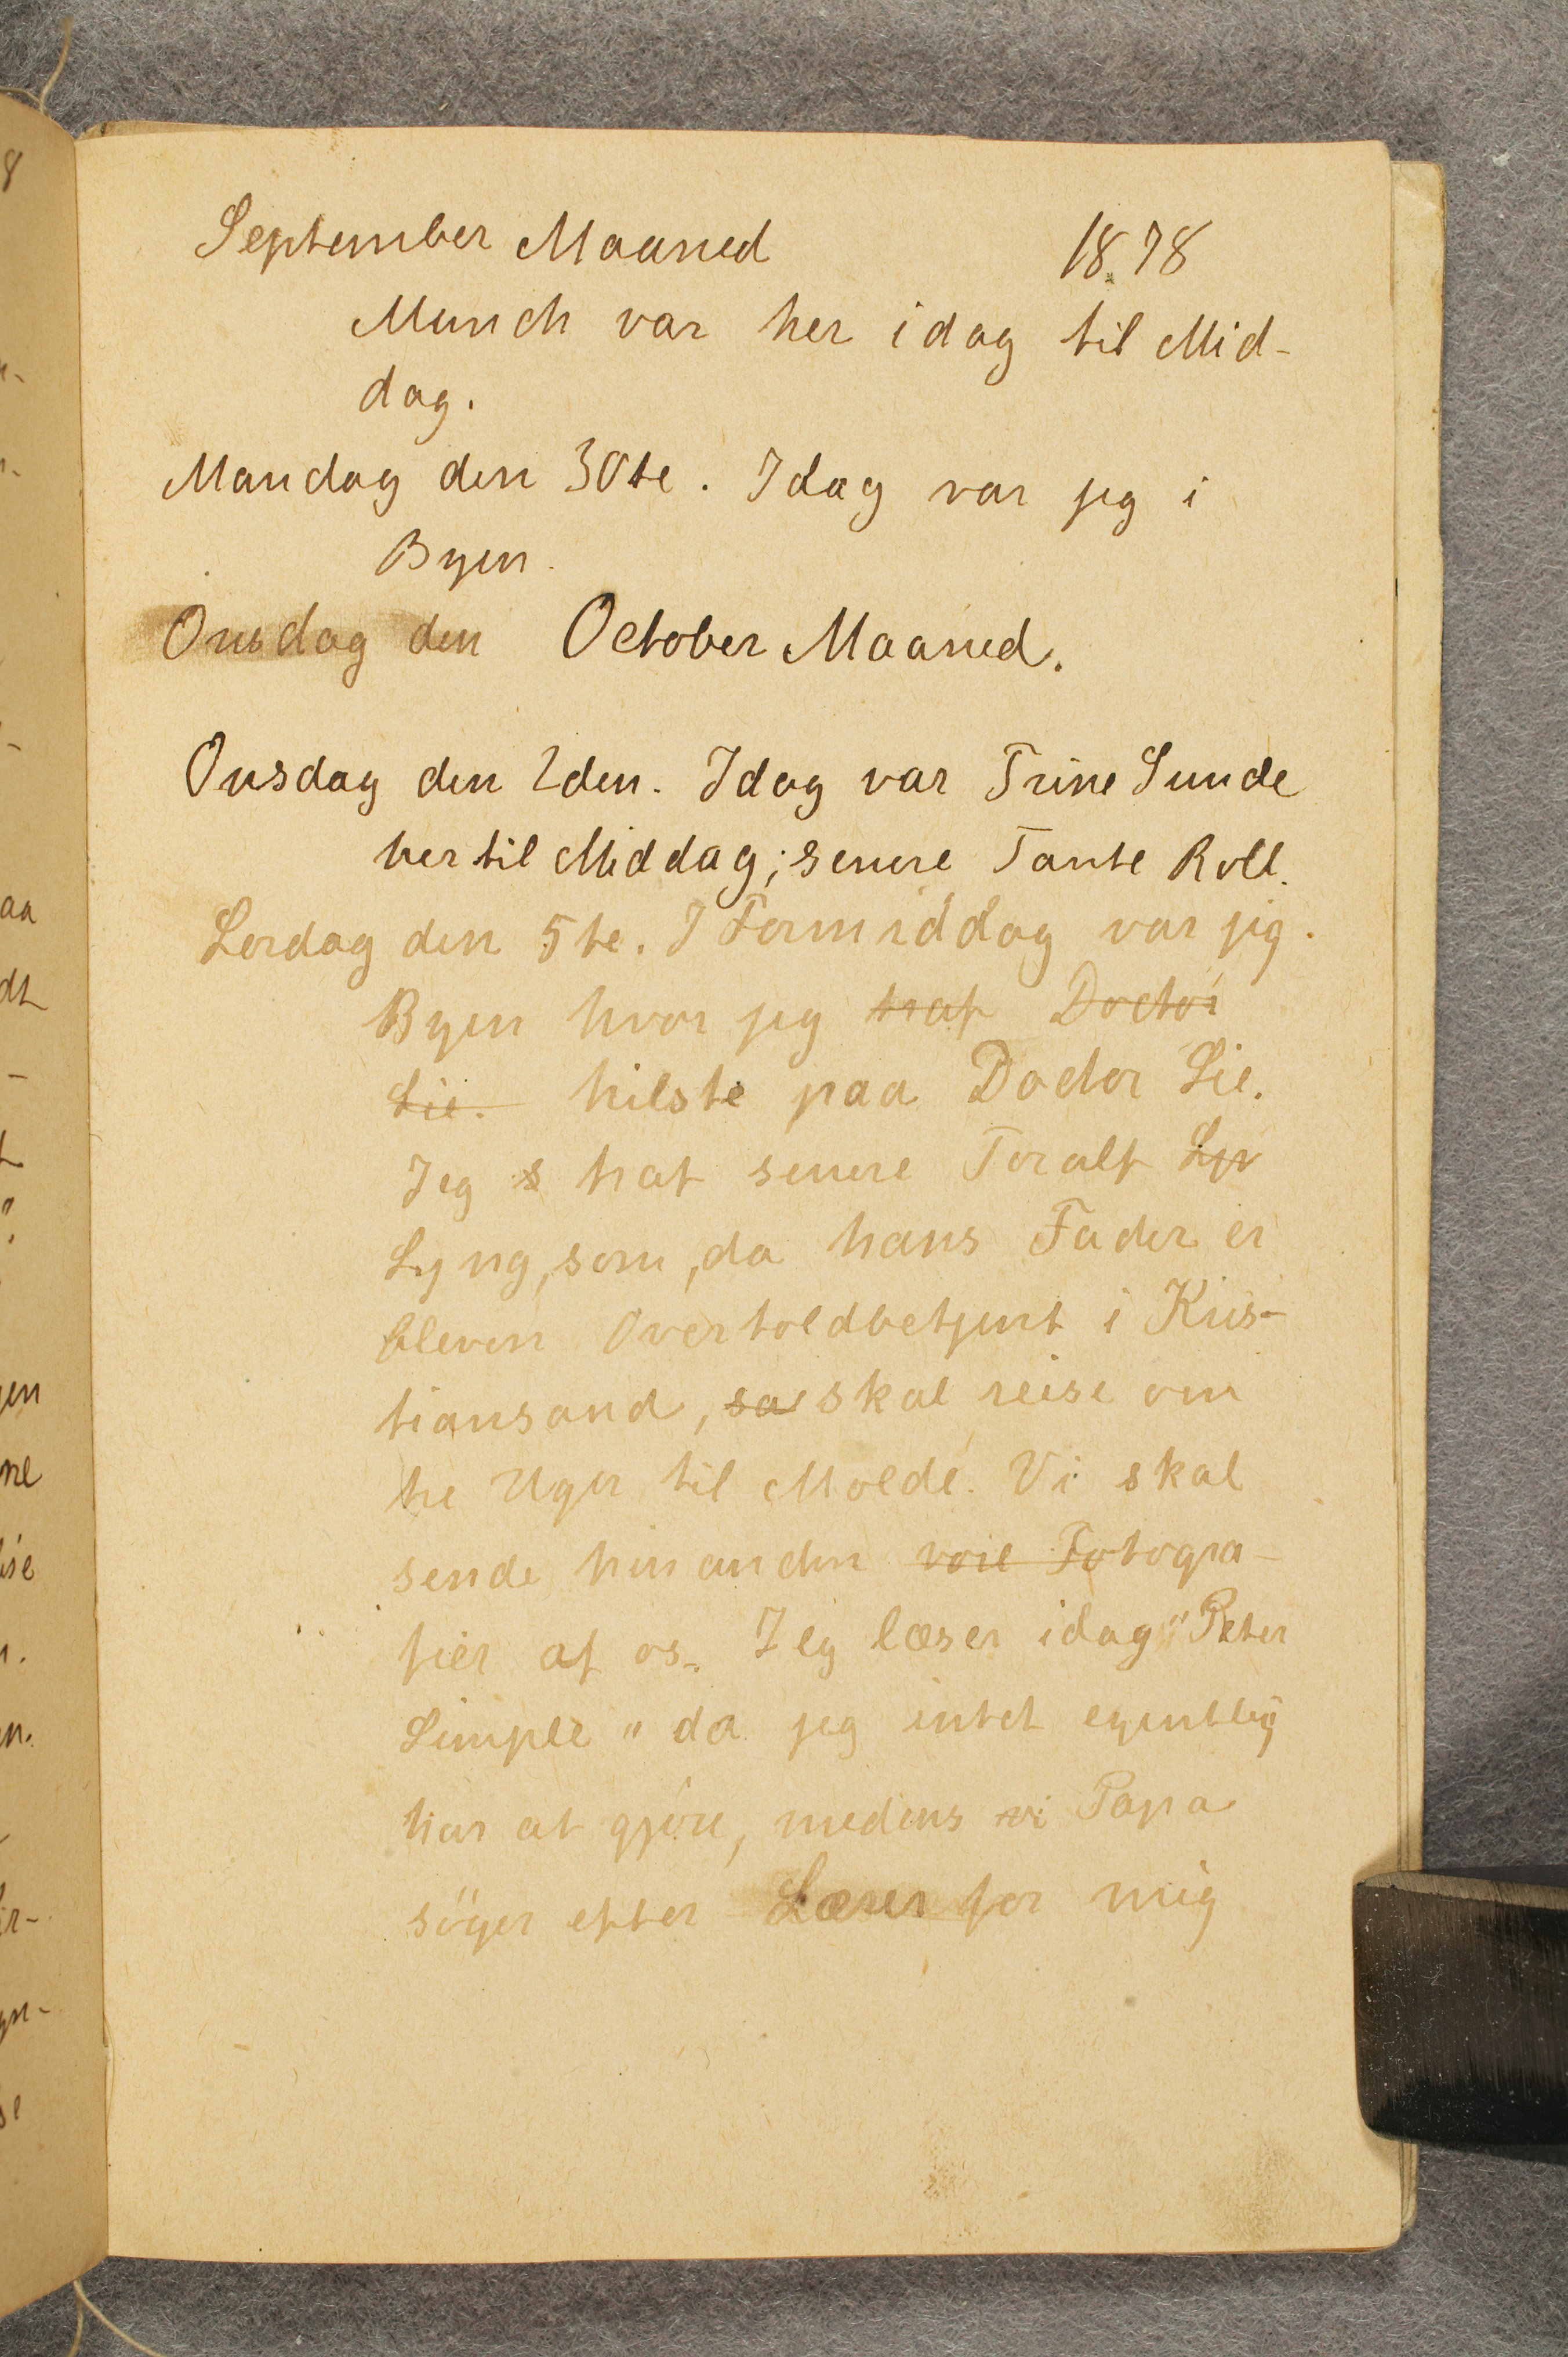 September Maaned 1878
Munch var her idag til Mid-
dag.
Mandag den 30te. Idag var jeg i
Byen.
Onsdag den October Maaned.
Onsdag den 2den. Idag var Trine Sunde
her til Middag; senere Tante Roll.
Lørdag den 5te. I Formiddag var jeg.
Byen hvor jeg traf Doctor
Lie. hilste paa Doctor Lie.
Jeg s traf senere Toralf Lyn
Lyng, som, da hans Fader er
bleven Overtoldbetjent i Kris-
tiansand, sa skal reise om
tre Uger til Molde. Vi skal
sende hinanden vore Fotogra-
fier af os. Jeg læser idag "Peter
Simple" da jeg intet egentlig
har at gjøre, medens vi Papa
søger efter Lærer for mig